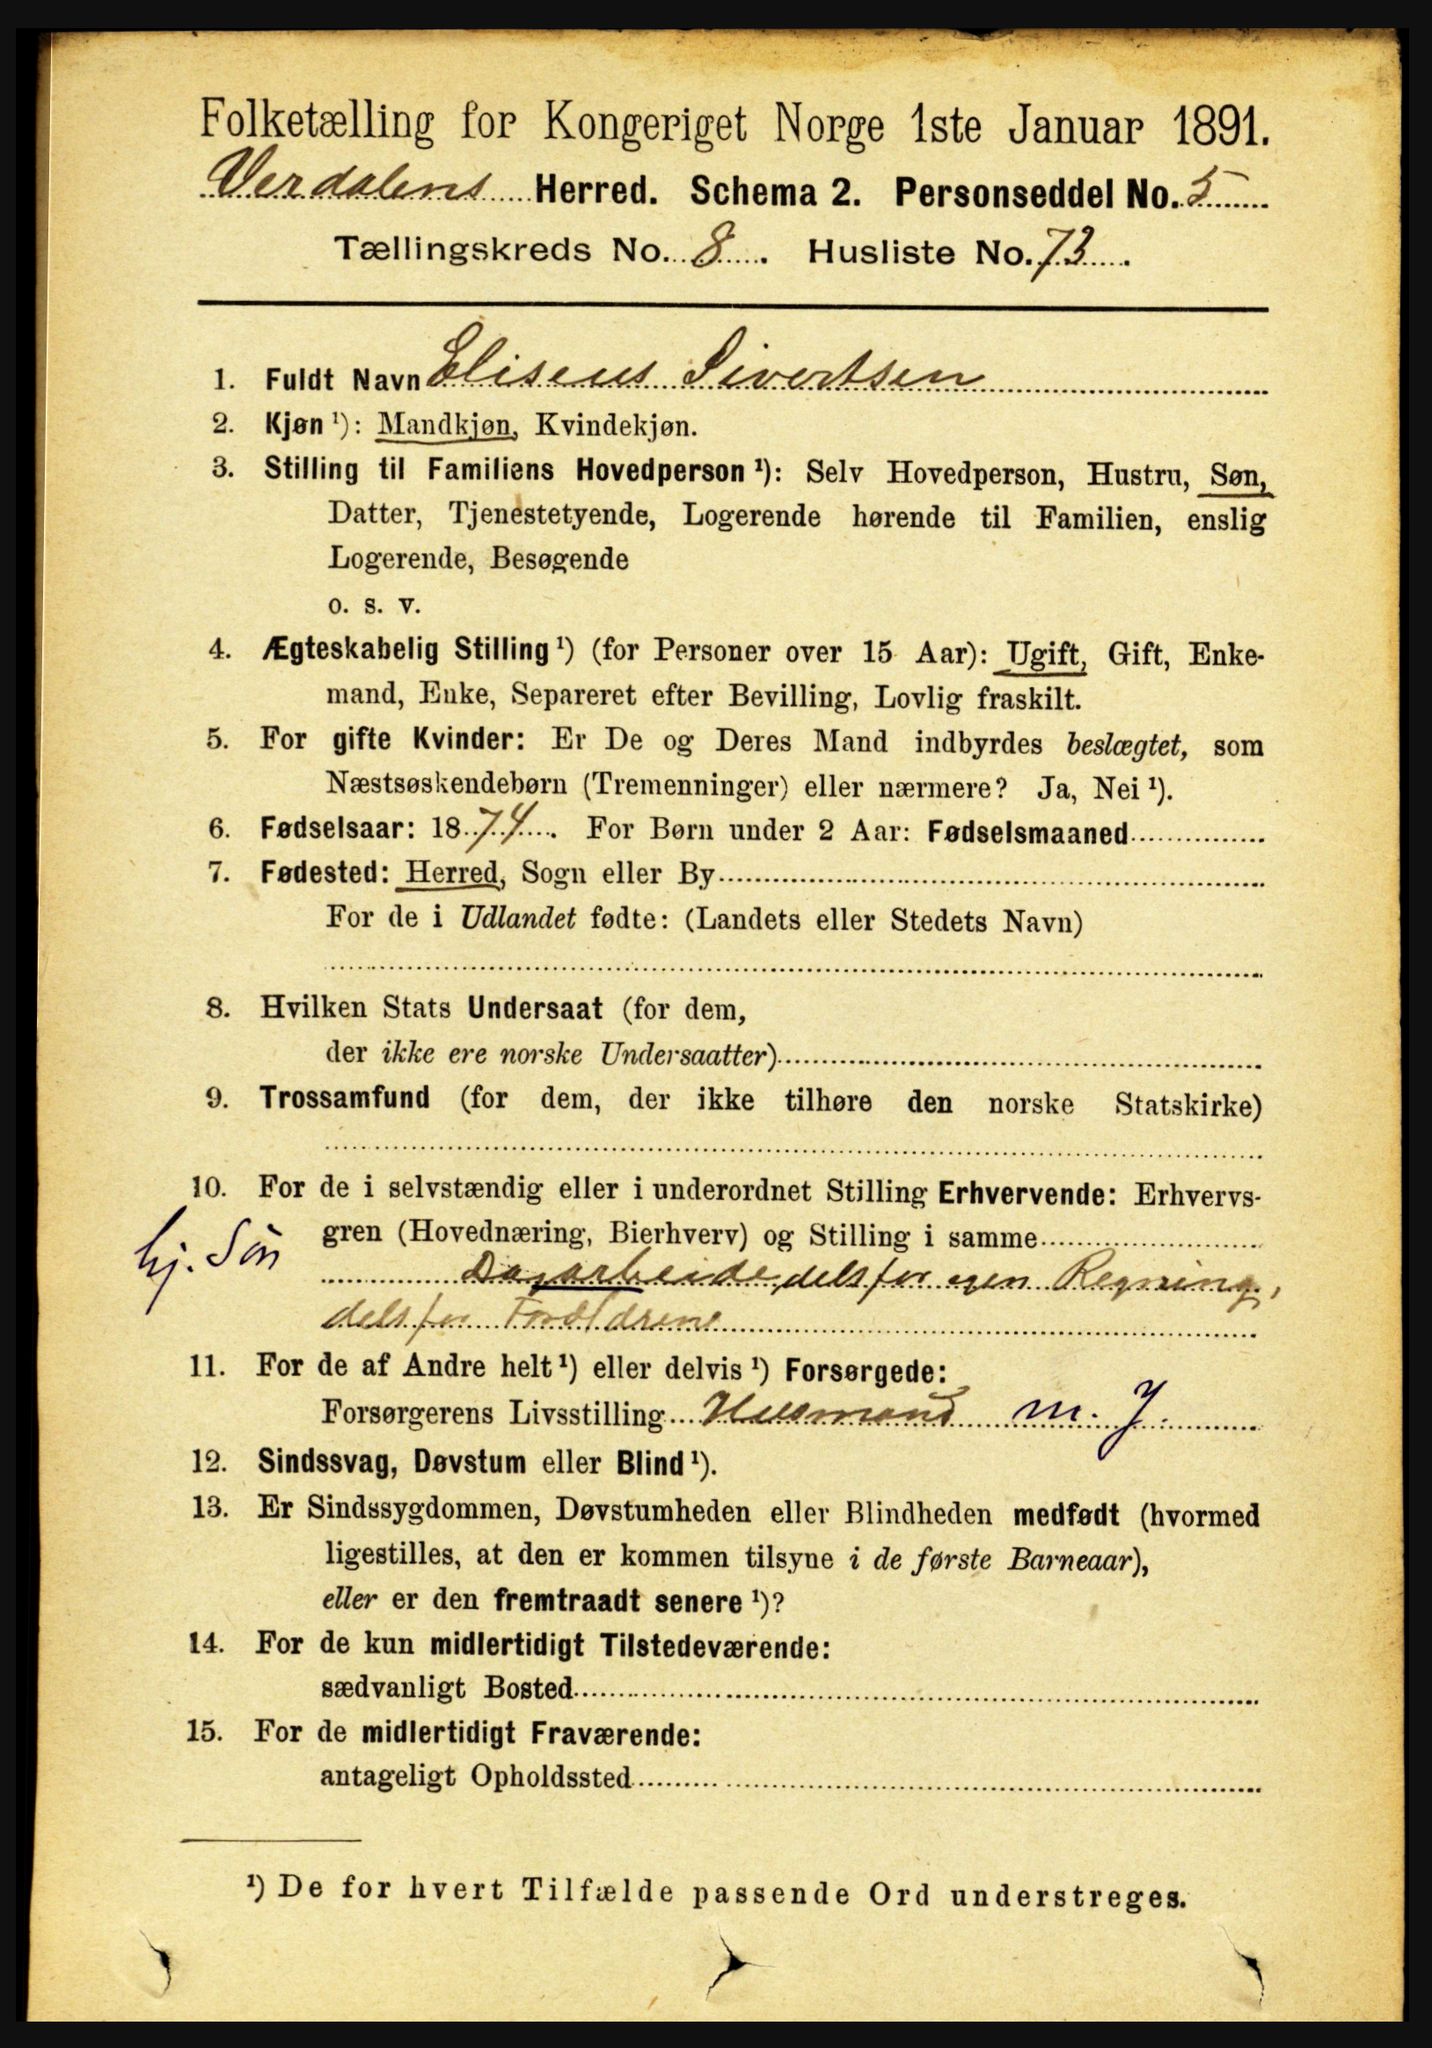 Folketælling for Kongeriget Norge 1ste Januar 1891.
Verdalens Herred. Schema 2. Personseddel No. 5
Tællingskreds No. 8. Husliste No. 73.
1. Fuldt Navn Eliseus Sivertsen
2. Kjøn ¹): Mandkjøn, Kvindekjøn.
3. Stilling til Familiens Hovedperson ¹): Selv Hovedperson, Hustru, Søn,
Datter, Tjenestetyende, Logerende hørende til Familien, enslig
Logerende, Besøgende
o. s. v.
4. Ægteskabelig Stilling ¹) (for Personer over 15 Aar): Ugift, Gift, Enke-
mand, Enke, Separeret efter Bevilling, Lovlig fraskilt.
5. For gifte Kvinder: Er De og Deres Mand indbyrdes beslægtet, som
Næstsøskendebørn (Tremenninger) eller nærmere? Ja, Nei ¹).
6. Fødselsaar: 1874. For Børn under 2 Aar: Fødselsmaaned
7. Fødested: Herred, Sogn eller By
For de i Udlandet fødte: (Landets eller Stedets Navn)
8. Hvilken Stats Undersaat (for dem,
der ikke ere norske Undersaatter)
9. Trossamfund (for dem, der ikke tilhøre den norske Statskirke)
10. For de i selvstændig eller i underordnet Stilling Erhvervende: Erhvervs-
gren (Hovednæring, Bierhverv) og Stilling i samme
hj. Søn
Dagarbeide, dels for egen Regning,
dels for Forældrene
11. For de af Andre helt ¹) eller delvis ¹) Forsørgede:
Forsørgerens Livsstilling Husmand m. J.
12. Sindssvag, Døvstum eller Blind ¹).
13. Er Sindssygdommen, Døvstumheden eller Blindheden medfødt (hvormed
ligestilles, at den er kommen tilsyne i de første Barneaar),
eller er den fremtraadt senere ¹)?
14. For de kun midlertidigt Tilstedeværende:
sædvanligt Bosted
15. For de midlertidigt Fraværende:
antageligt Opholdssted
¹) De for hvert Tilfælde passende Ord understreges.